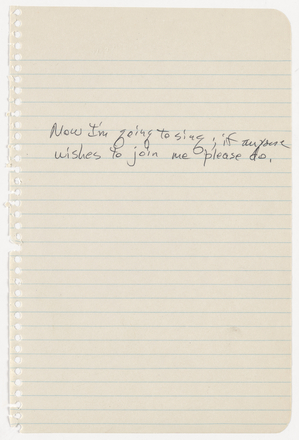 Now I'm going to sing, if anyone
wishes to join me please do.